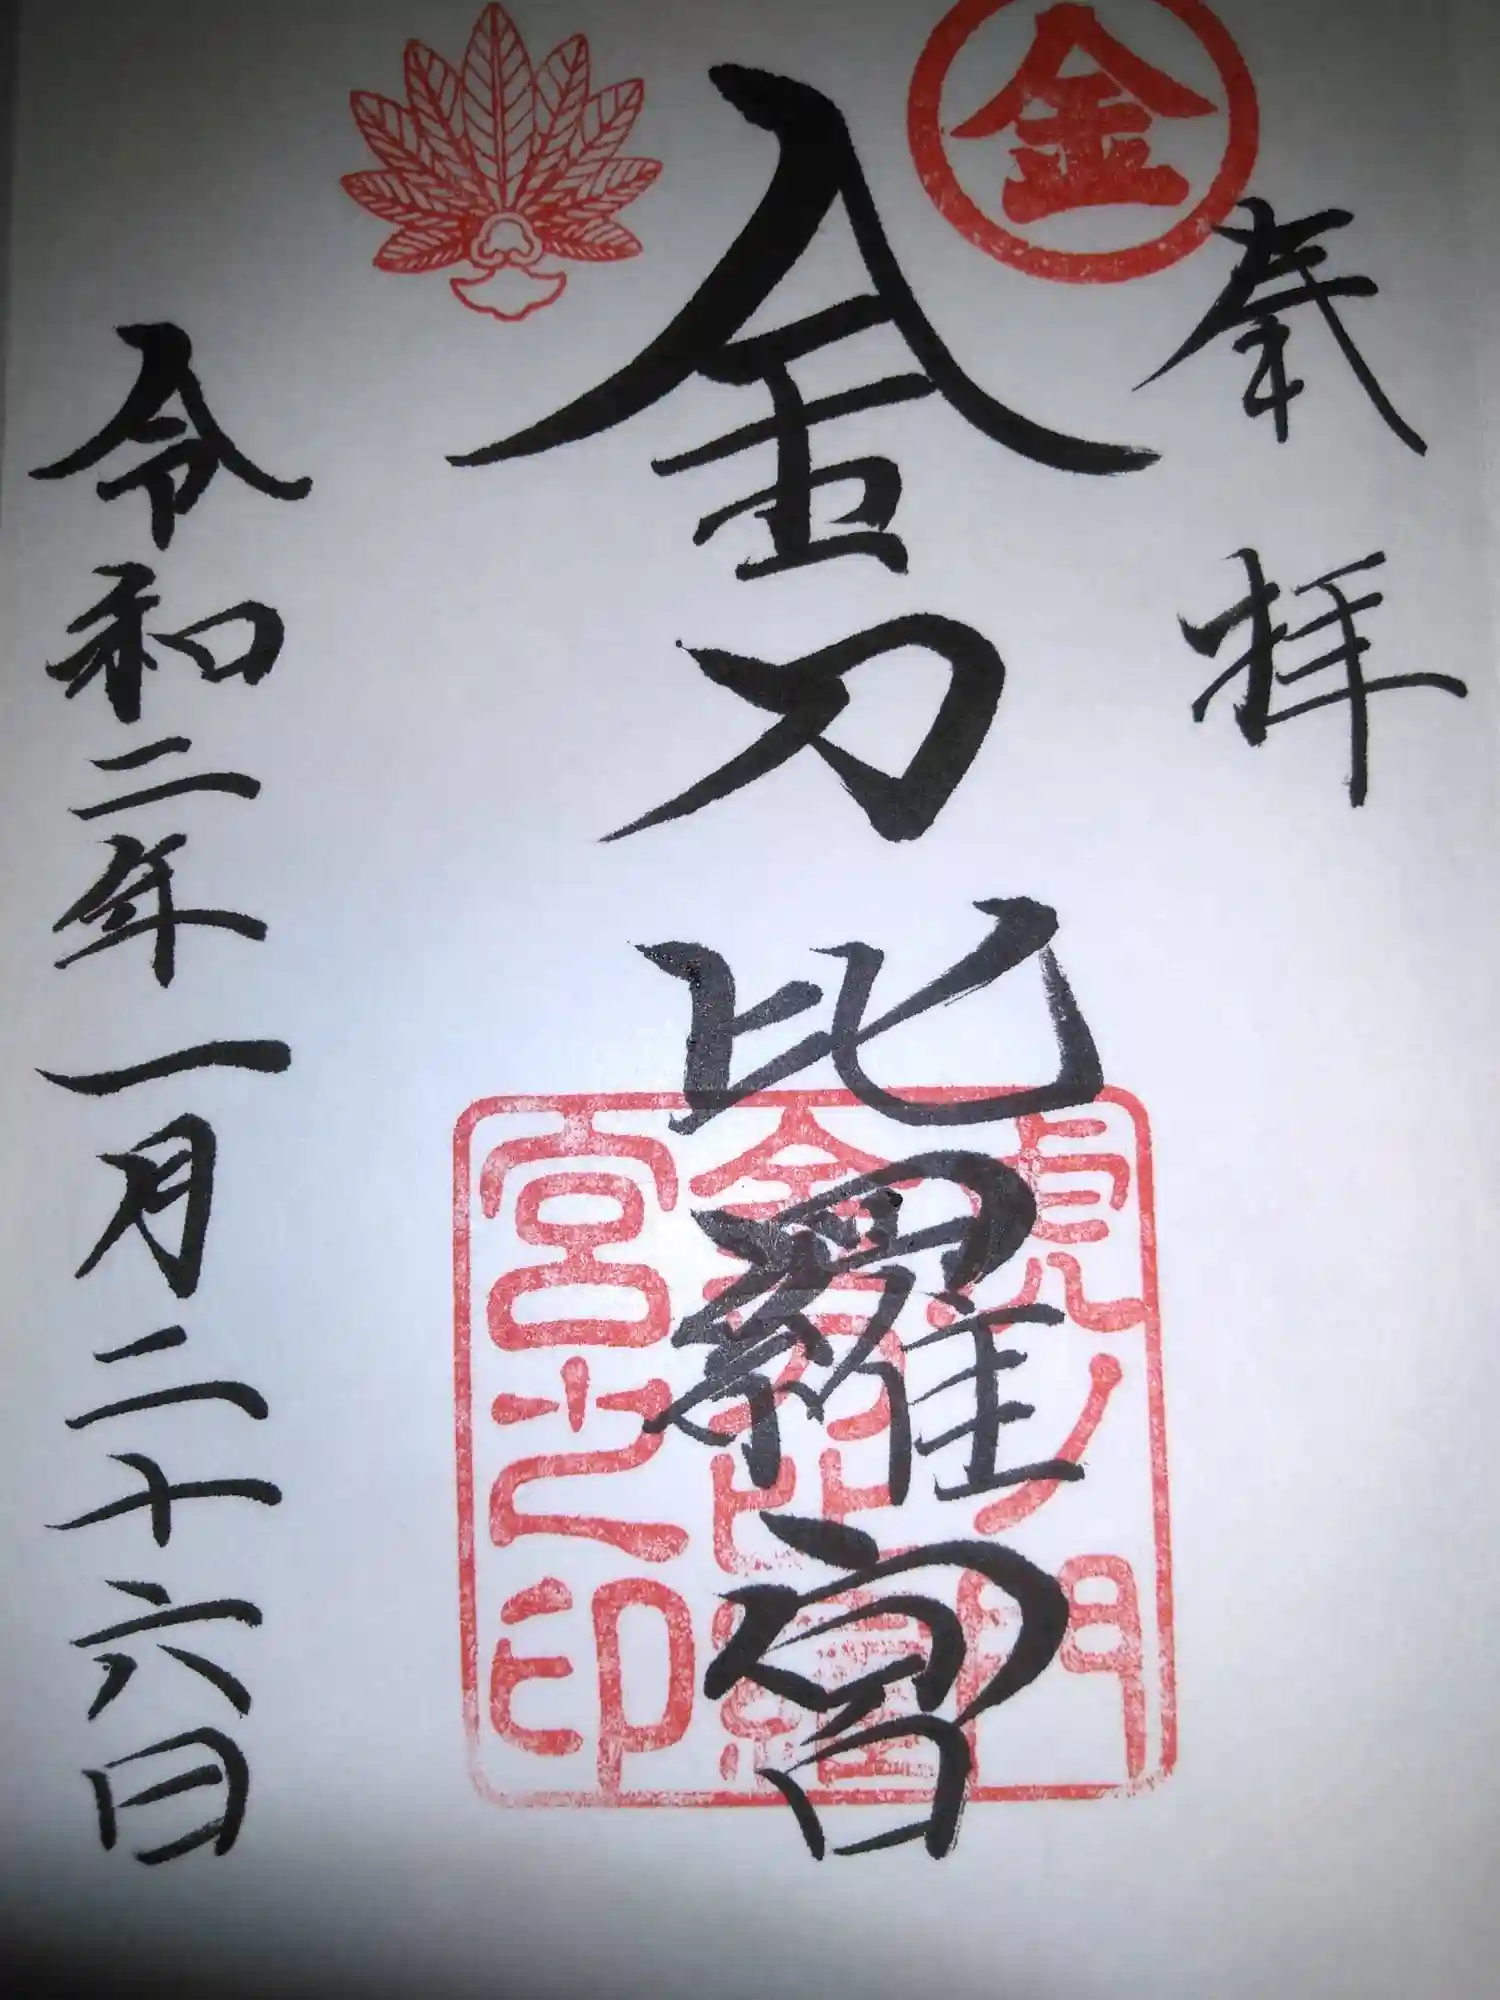 金
奉拝
金刀比羅宮
虎ノ門
金刀比羅
宮之印
令和二年一月二十六日